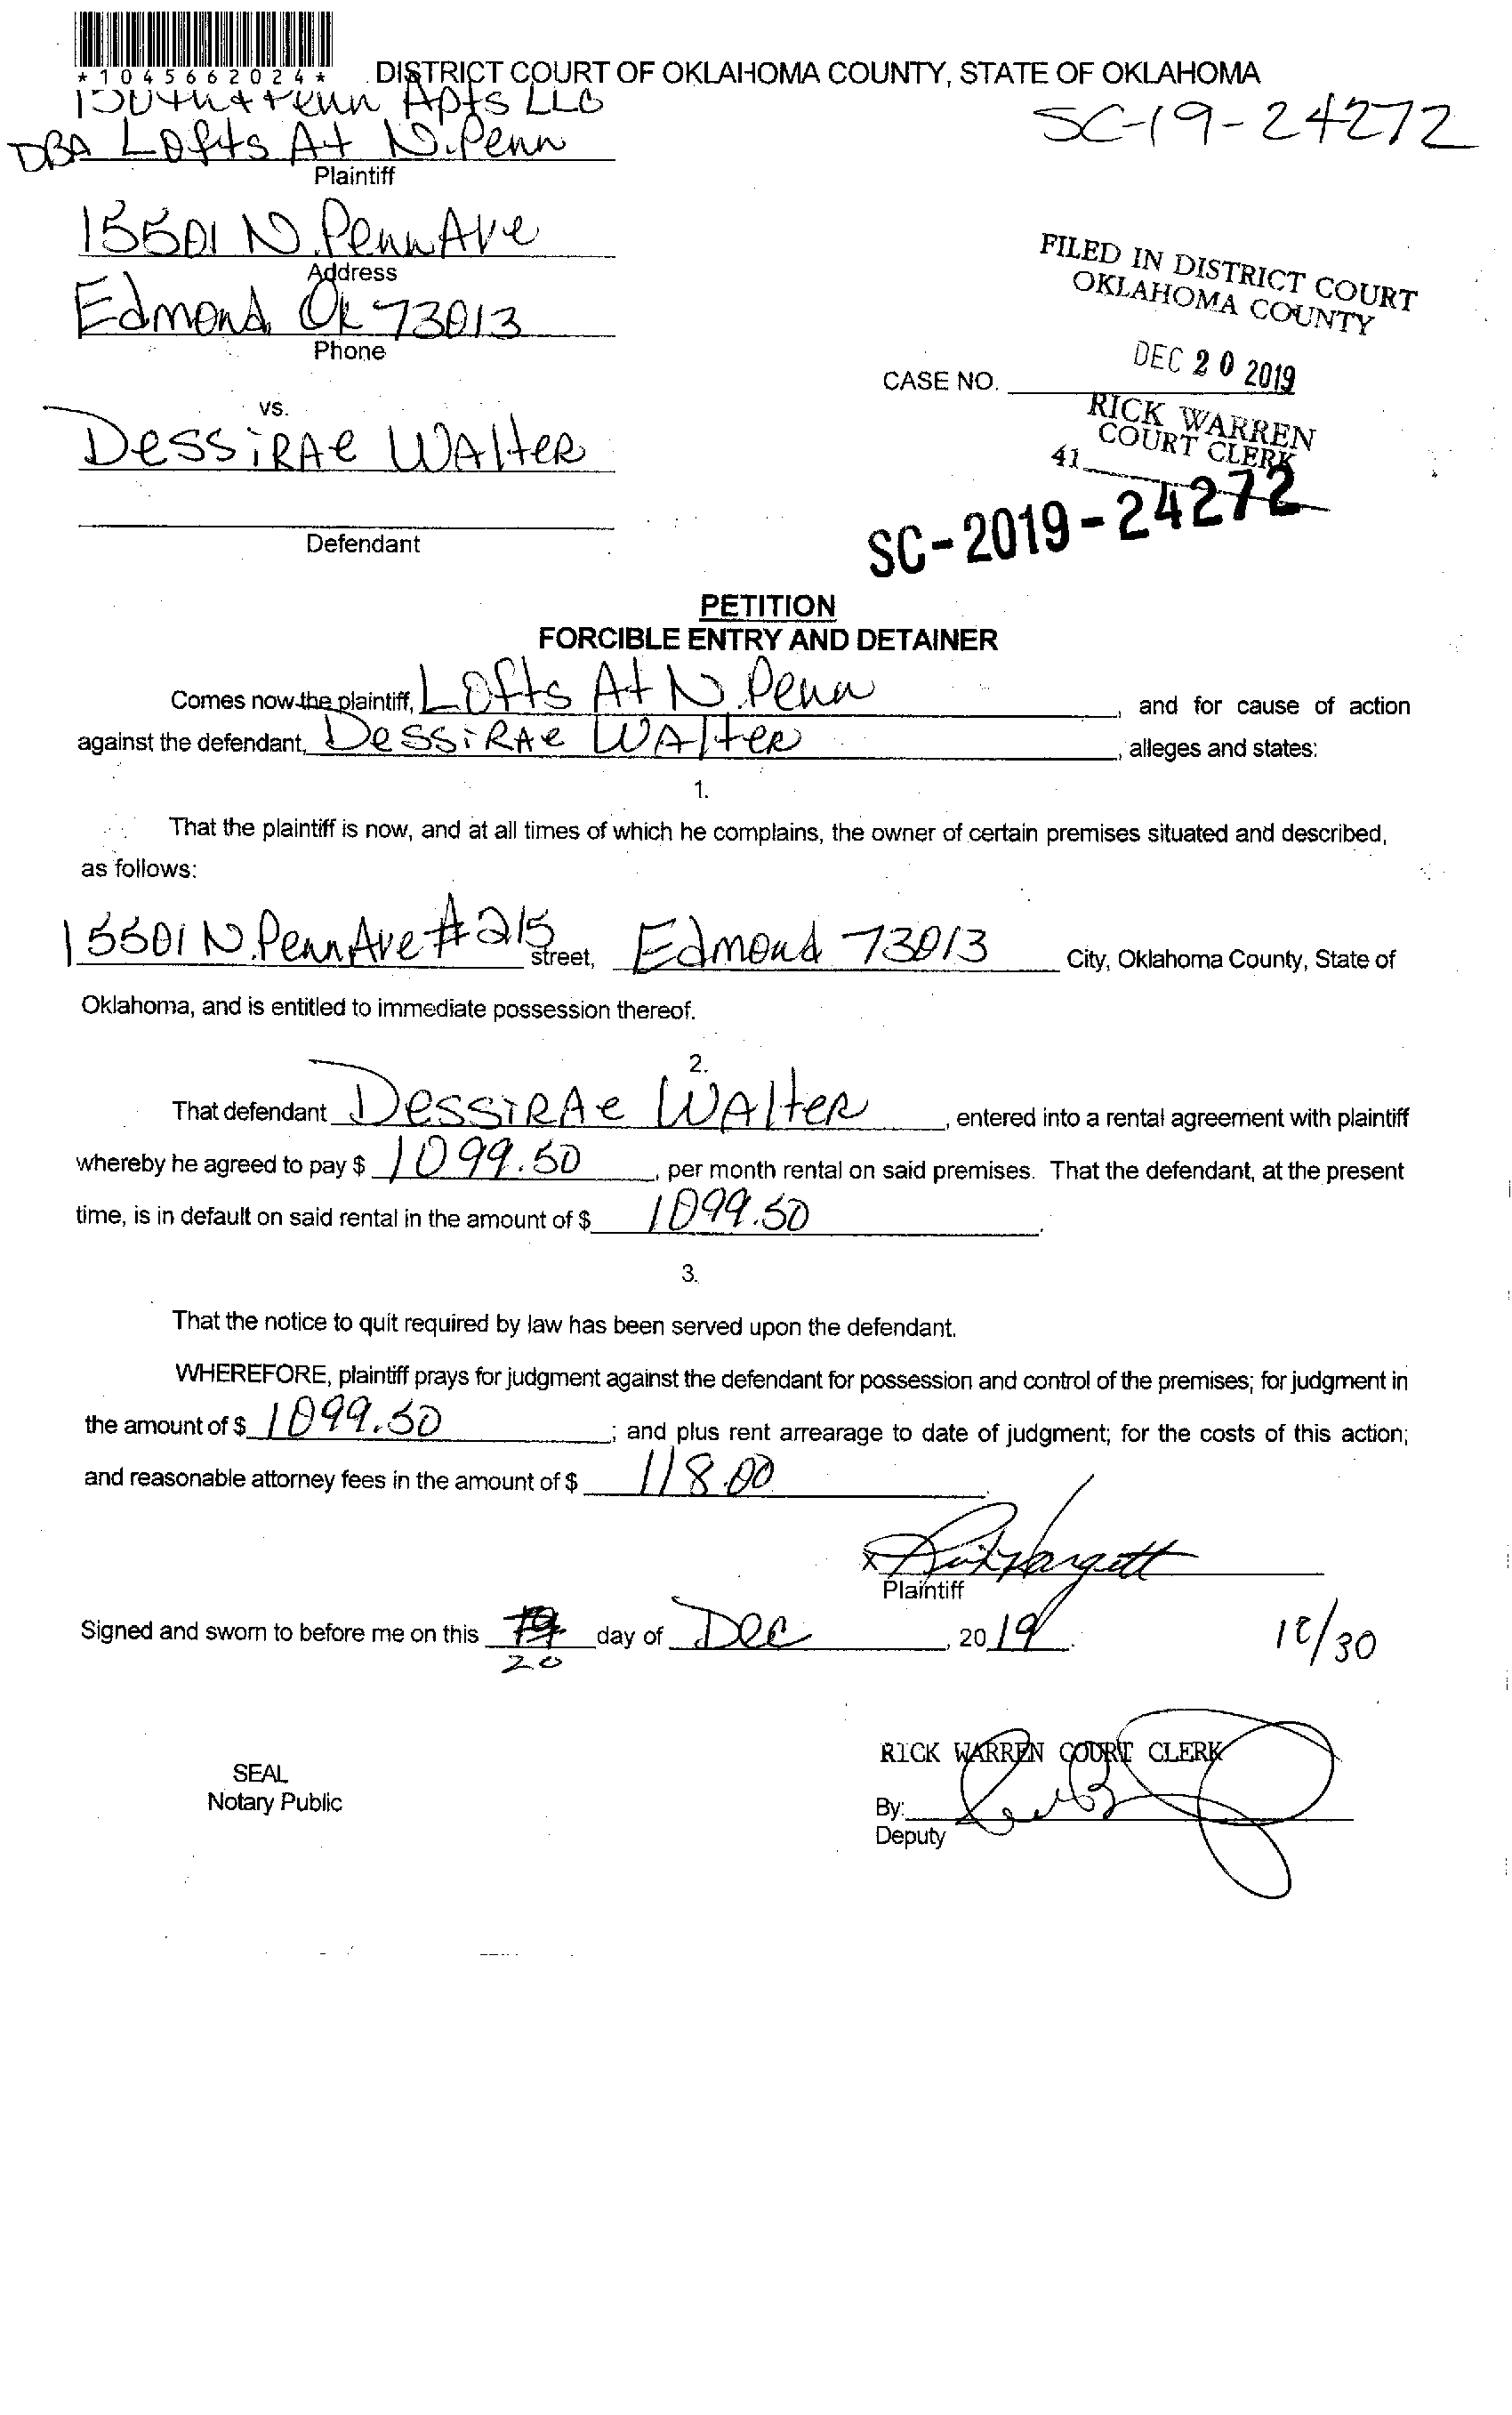 *1045662024*
DISTRICT COURT OF OKLAHOMA COUNTY, STATE OF OKLAHOMA
Apts LLC
DBA Lofts At N. Penn
Plaintiff
SC-19-24272
15501 N. Penn Ave
Address
Edmond, Ok 73013
Phone
FILED IN DISTRICT COURT
OKLAHOMA COUNTY
DEC 20 2019
RICK WARREN
COURT CLERK
41
CASE NO.
vs.
DessiRAe WAlteR
Defendant
SC-2019-24272
PETITION
FORCIBLE ENTRY AND DETAINER
Comes now the plaintiff, Lofts At N. Penn, and for cause of action
against the defendant, DessiRAe WAlteR, alleges and states:
1.
That the plaintiff is now, and at all times of which he complains, the owner of certain premises situated and described,
as follows:
15501 N. Penn Ave #215 street, Edmond 73013 City, Oklahoma County, State of
Oklahoma, and is entitled to immediate possession thereof.
2.
That defendant DessiRAe WAlteR, entered into a rental agreement with plaintiff
whereby he agreed to pay $ 1099.50, per month rental on said premises. That the defendant, at the present
time, is in default on said rental in the amount of $ 1099.50.
3.
That the notice to quit required by law has been served upon the defendant.
WHEREFORE, plaintiff prays for judgment against the defendant for possession and control of the premises; for judgment in
the amount of $ 1099.50; and plus rent arrearage to date of judgment; for the costs of this action;
and reasonable attorney fees in the amount of $ 118.00.
x
Plaintiff
Signed and sworn to before me on this 19 day of Dec, 2019.
20
12/30
RICK WARREN COURT CLERK
SEAL
Notary Public
By:
Deputy